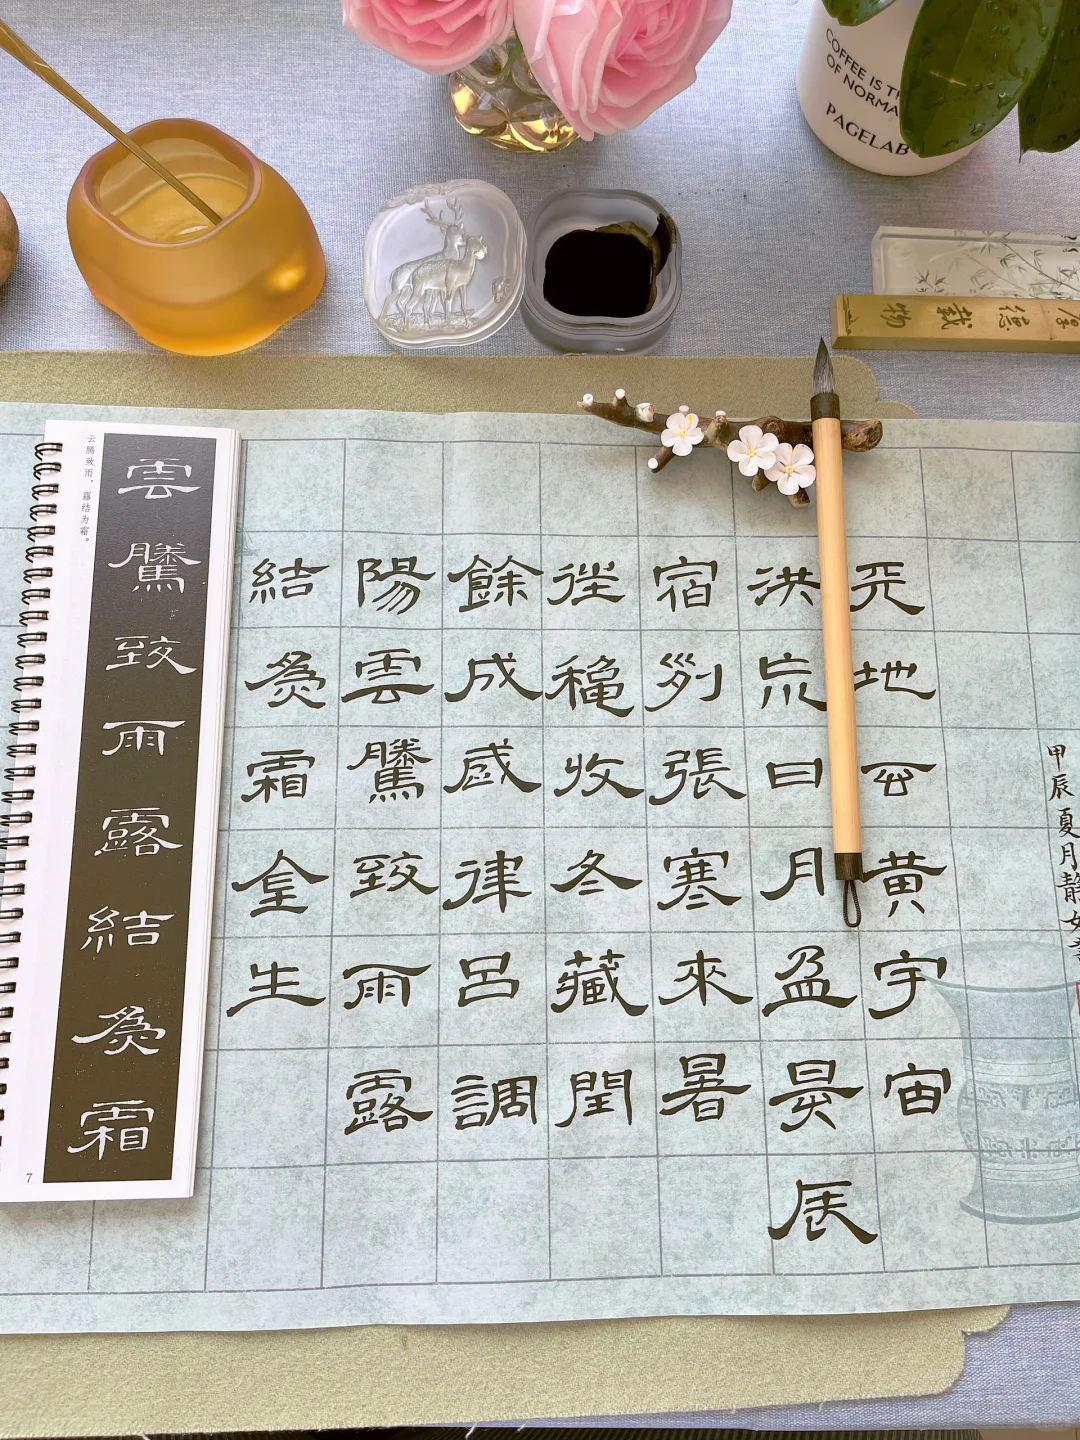 COFFEE IS TH
OF NORMA
PAGELAB
厚德載物
甲辰夏月静如書
天地玄黄宇宙
洪荒日月盈昃辰
宿列張寒來暑
往穐收冬藏閏
餘成歲律呂調
陽雲騰致雨露
結為霜金生
雲騰致雨露結為霜
云腾致雨，露结为霜。
7